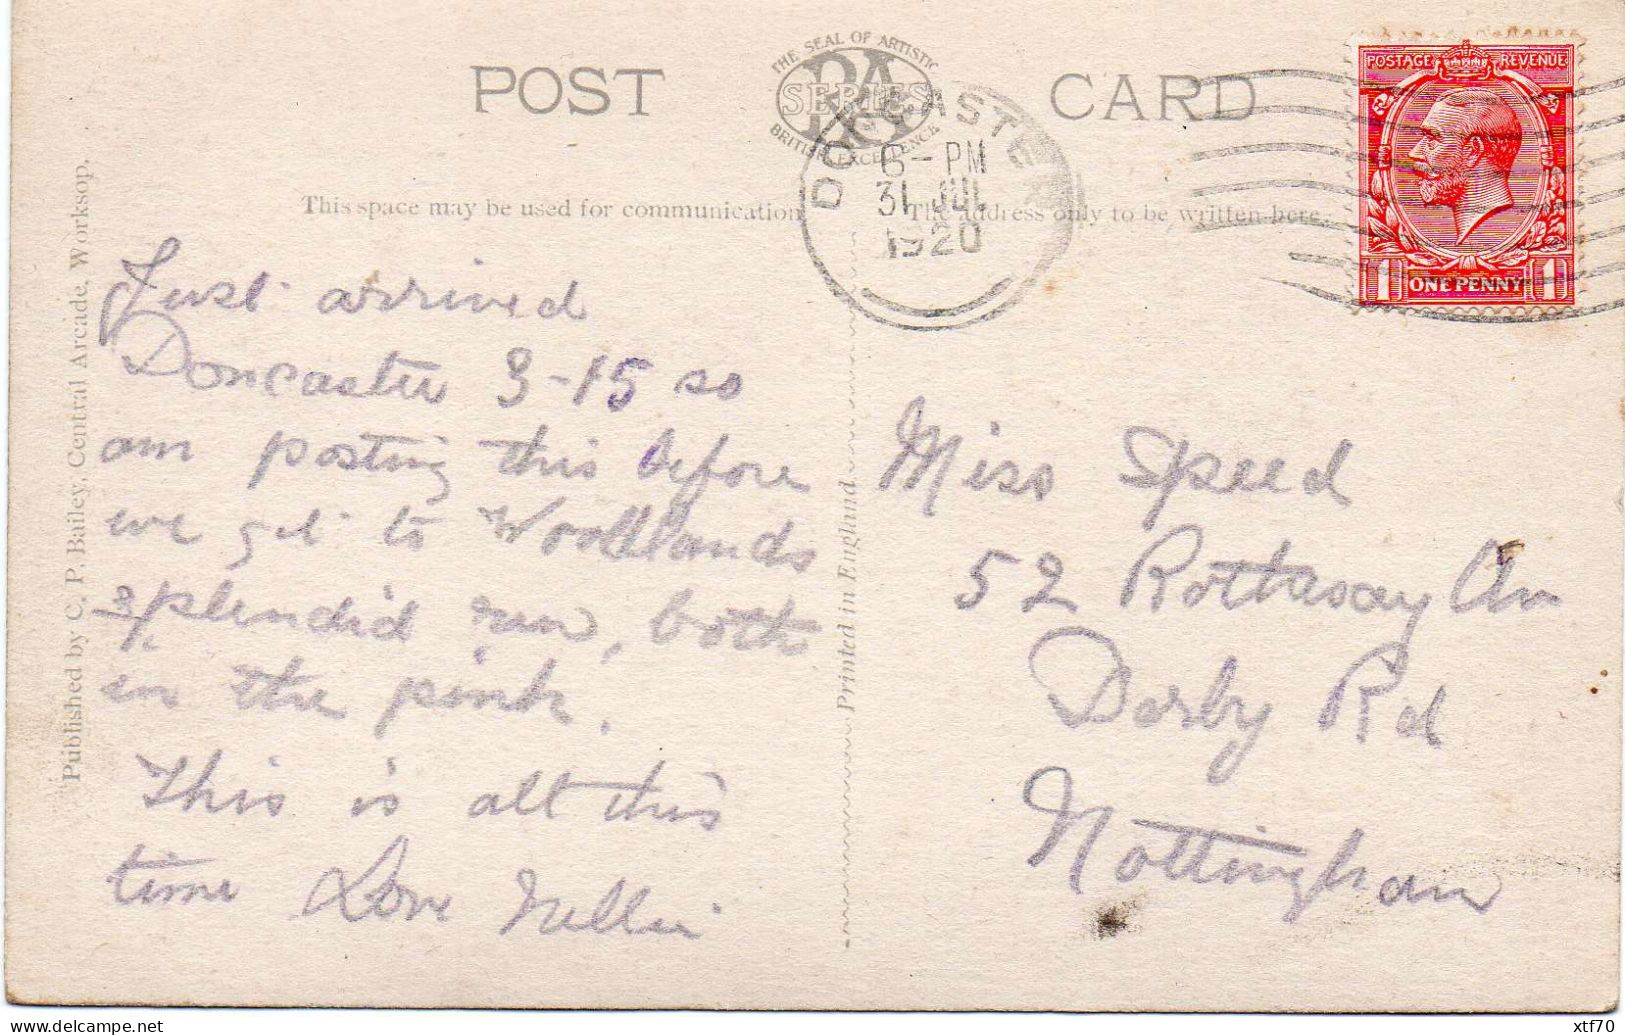 POST CARD
THE SEAL OF ARTISTIC
RA
SERIES
BRITISH EXCELLENCE
DONCASTER
6-PM
31 JUL
1920
POSTAGE REVENUE
1 ONE PENNY 1
This space may be used for communication
The address only to be written here.
Published by C. P. Bailey, Central Arcade, Worksop.
Printed in England
Just arrived
Doncaster 3-15 so
am posting this before
we get to Woodlands
splendid run, both
in the pink.
This is all this
time Love Nellie
Miss Speed
52 Rottesay Av
Derby Rd
Nottingham
delcampe.net
xtf70